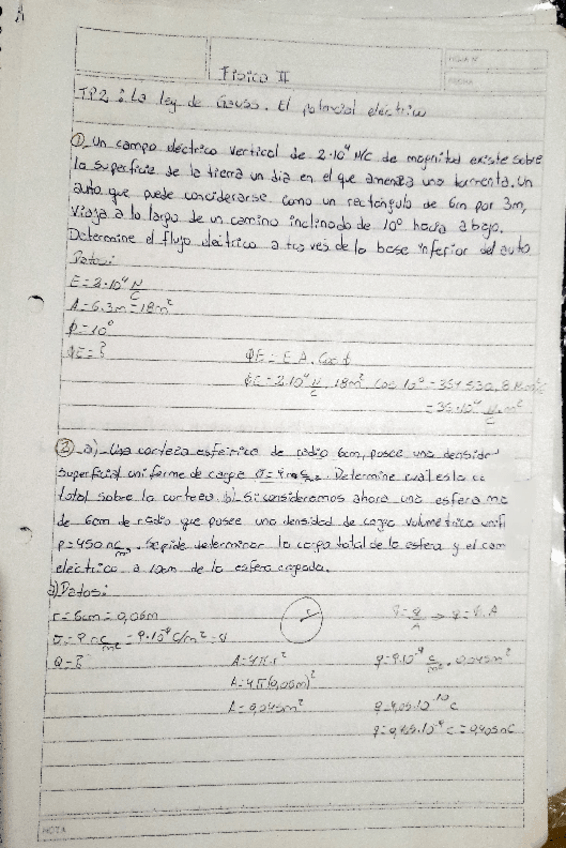 Física II
TP2: La ley de Gauss. El potencial eléctrico
① Un campo eléctrico vertical de 2·10⁴ N/C de magnitud existe sobre
la superficie de la tierra un dia en el que amenaza una tormenta. Un
auto que puede considerarse como un rectángulo de 6m por 3m,
viaja a lo largo de un camino inclinado de 10° hacia abajo.
Determine el flujo eléctrico a través de la base inferior del auto
Datos:
E=2·10⁴ N/C
A=6.3m=18m²
φ=10°
ΦE=?
ΦE = E.A.Cos φ
ΦE=2·10⁴ N/C . 18m². cos 10° =354530,8
=35·10⁴ N/C.m²
② a) Una corteza esférica de radio 6cm, posee una densidad
superficial uniforme de carga σ=9 nC/m². Determine cual es la
total sobre la corteza. b) Si consideramos ahora una esfera
de 6cm de radio que posee una densidad de carga volumétrica
ρ=450 nC/m³. Se pide determinar la carga total de la esfera y el
eléctrico a 10cm de la esfera cargada.
a) Datos:
r=6cm=0,06m
σ=9 nC/m² = 9·10⁻⁹ C/m²
Q=?
A=4π.r²
A=4π(0,06m)²
A=0,045m²
q=9·10⁻⁹ C/m² . 0,045m²
q=4,05·10⁻¹⁰ C
q=0,405·10⁻⁹ C=0,405nC
NOTA